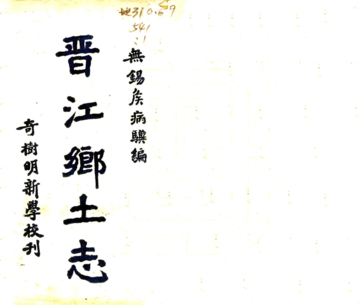 地310.89
541
:1
無錫侯病驥編
晋江鄉土志
奇樹明新學校刊